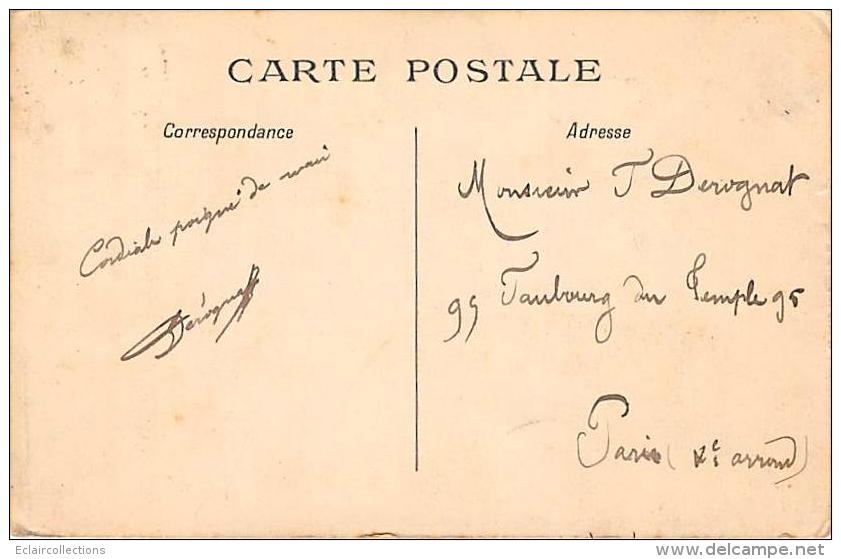 CARTE POSTALE
Correspondance
Adresse
Cordiale poigné de main
Dérognat
Monsieur T Derognat
95 Faubourg du Temple 95
Paris (Xe arrond)
Eclaircollections
www.delcampe.net